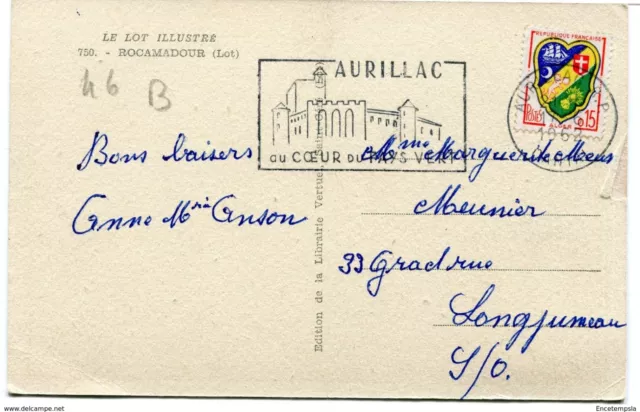 LE LOT ILLUSTRÉ
750. - ROCAMADOUR (Lot)
46 B
AURILLAC
au CŒUR DU PAYS VERT
REPUBLIQUE FRANÇAISE
POSTES
0,15
ALGER
Bons baisers
Anne Mrie Anson
Edition de la Librairie Vertuel, Saint-Céré (Lot)
Mme Marguerite Mens
Meunier
33 Grad rue
Longjumeau
S/O.
www.delcampe.net
Encetempsla